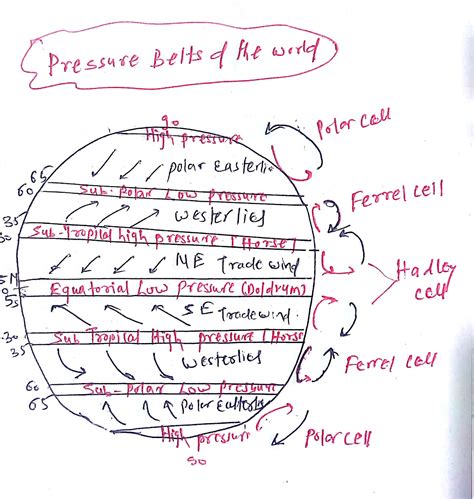 Pressure Belts of the world
90
High pressure
Polar cell
polar Easterlie
65
60
Sub-Polar Low Pressure
Ferrel cell
westerlies
35
30
Sub-Tropical high pressure (Horse)
NE Trade wind
Hadley cell
5N
0
5s
Equatorial Low Pressure (Doldrum)
SE Trade wind
30
35
Sub Tropical High pressure (Horse
westerlies
Ferrel cell
60
65
Sub-Polar Low Pressure
Polar Easterlie
High pressure
90
Polar cell